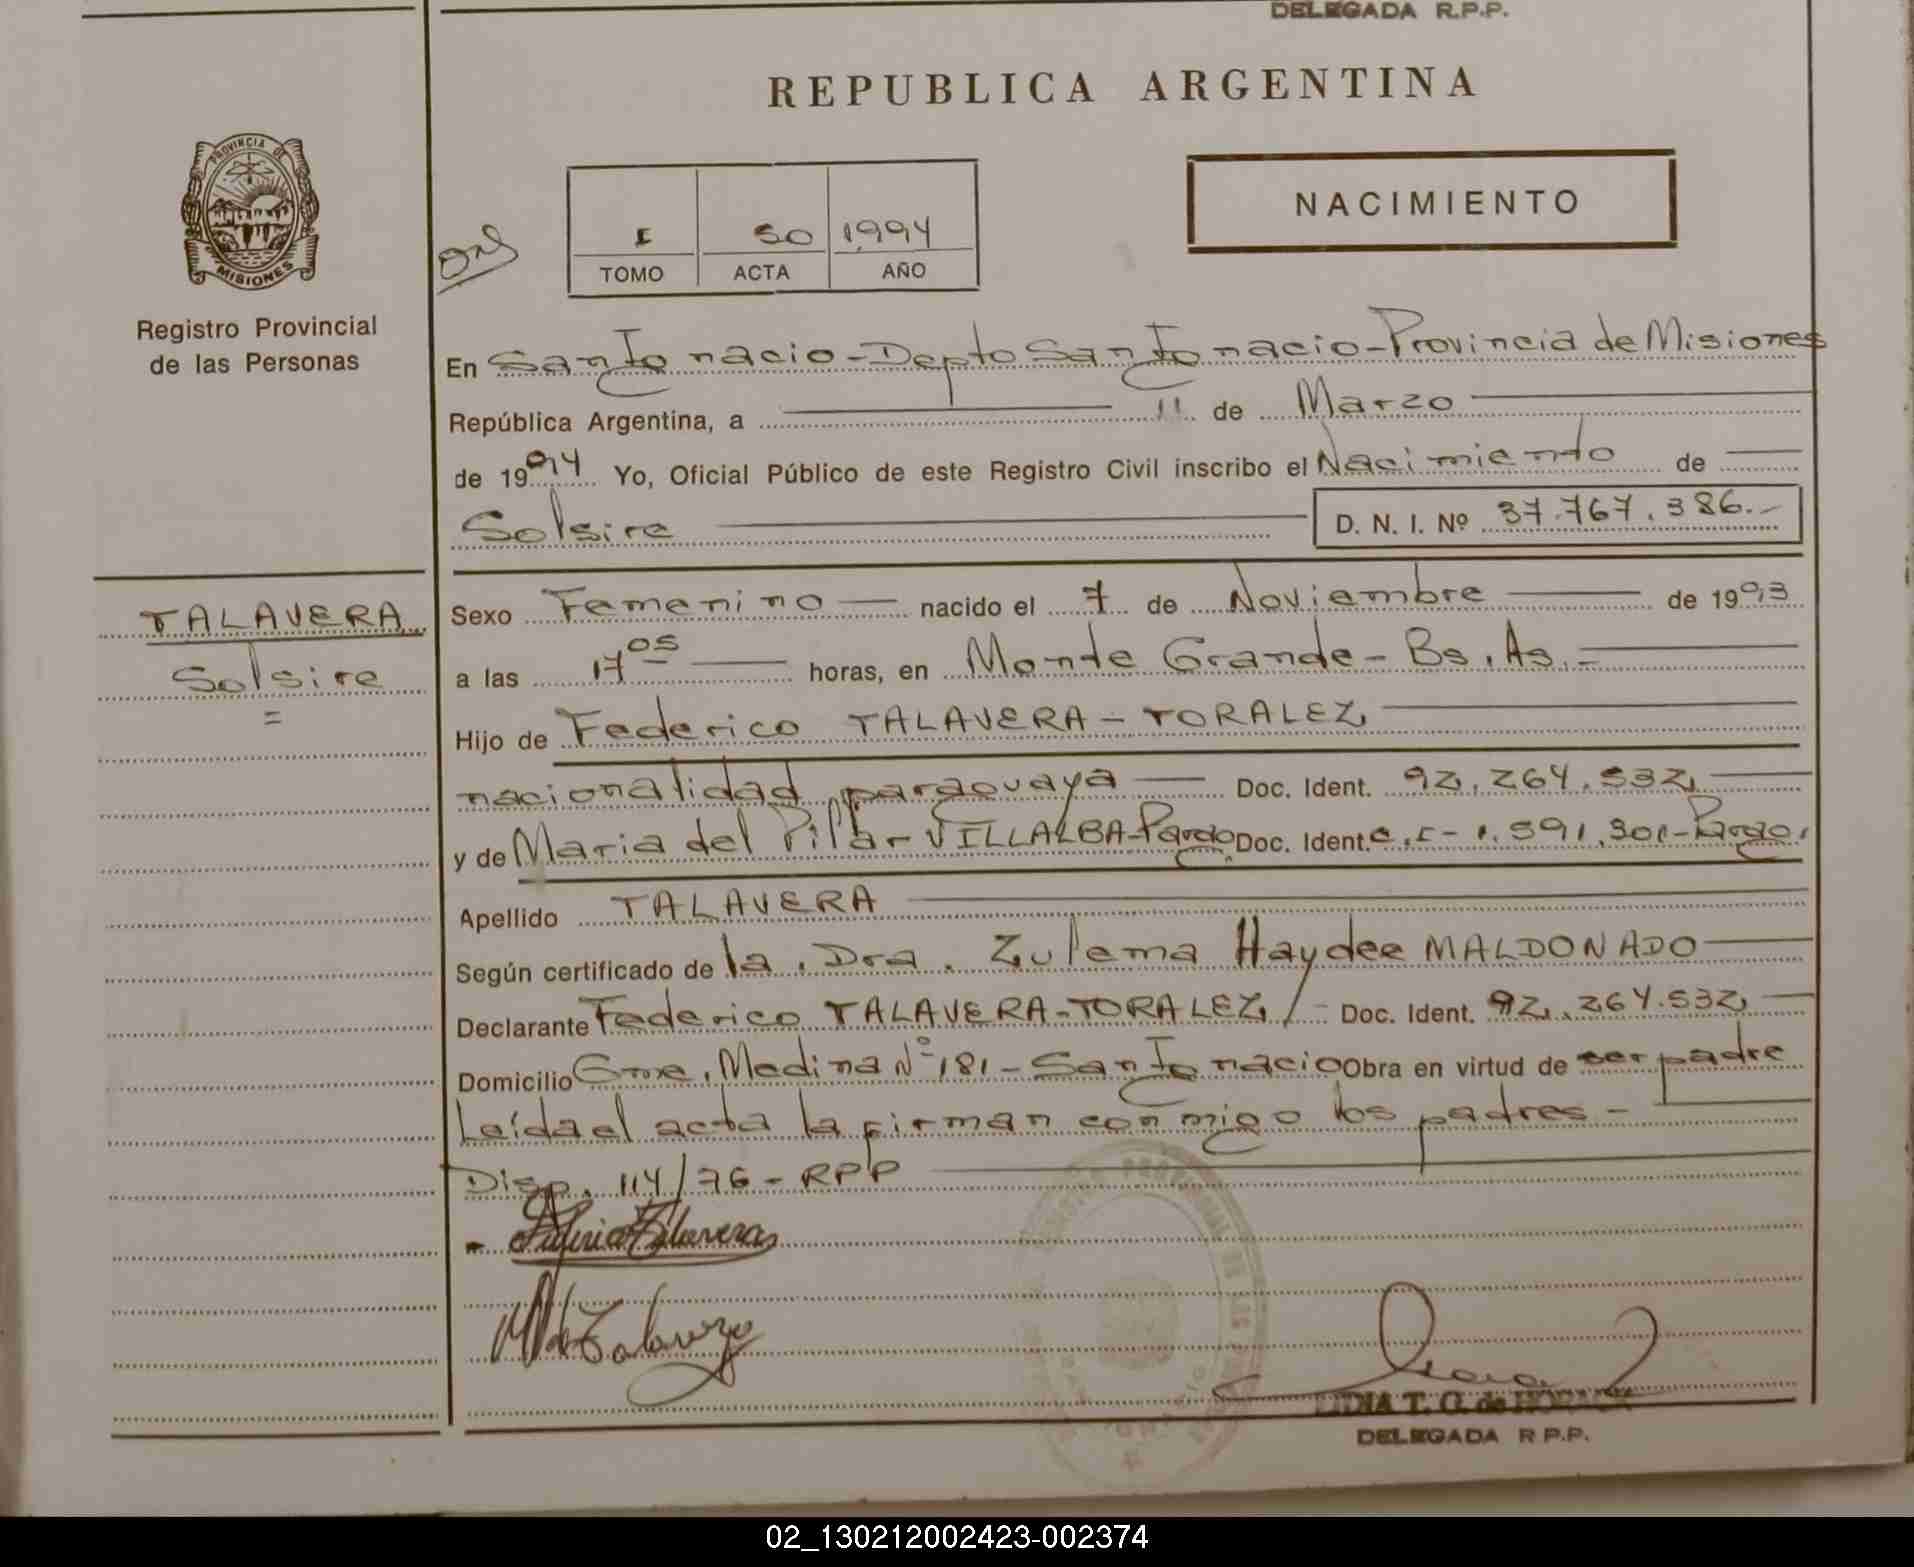 DELEGADA R.P.P.
REPUBLICA ARGENTINA
PROVINCIA DE
MISIONES
Registro Provincial
de las Personas
I 50 1994
TOMO ACTA AÑO
NACIMIENTO
En San Ignacio - Depto San Ignacio - Provincia de Misiones
República Argentina, a 11 de Marzo
de 1994 Yo, Oficial Público de este Registro Civil inscribo el Nacimiento de
Solsire D. N. I. Nº 37.767.386.-
TALAVERA
Solsire
=
Sexo Femenino nacido el 7 de Noviembre de 1993
a las 17 05 horas, en Monte Grande - Bs. As. -
Hijo de Federico TALAVERA - TORALEZ
nacionalidad paraguaya Doc. Ident. 92.264.532
y de Maria del Pilar VILLALBA - Doc. Ident. C.I - 1.591.301 -
Apellido TALAVERA
Según certificado de la Dra. Zulema Haydee MALDONADO
Declarante Federico TALAVERA - TORALEZ Doc. Ident. 92.264.532
Domicilio Medina Nº 181 - San Ignacio Obra en virtud de ser padre
Leída el acta la firman conmigo los padres -
Disp. 114/76 - RPP
LIDIA T. G. de
DELEGADA R.P.P.
02_130212002423-002374